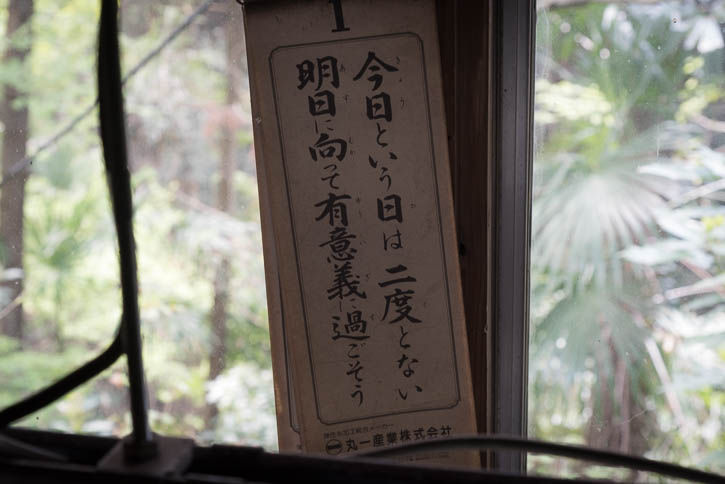 1
今日という日は二度とない
明日に向って有意義に過ごそう
丸一産業株式会社